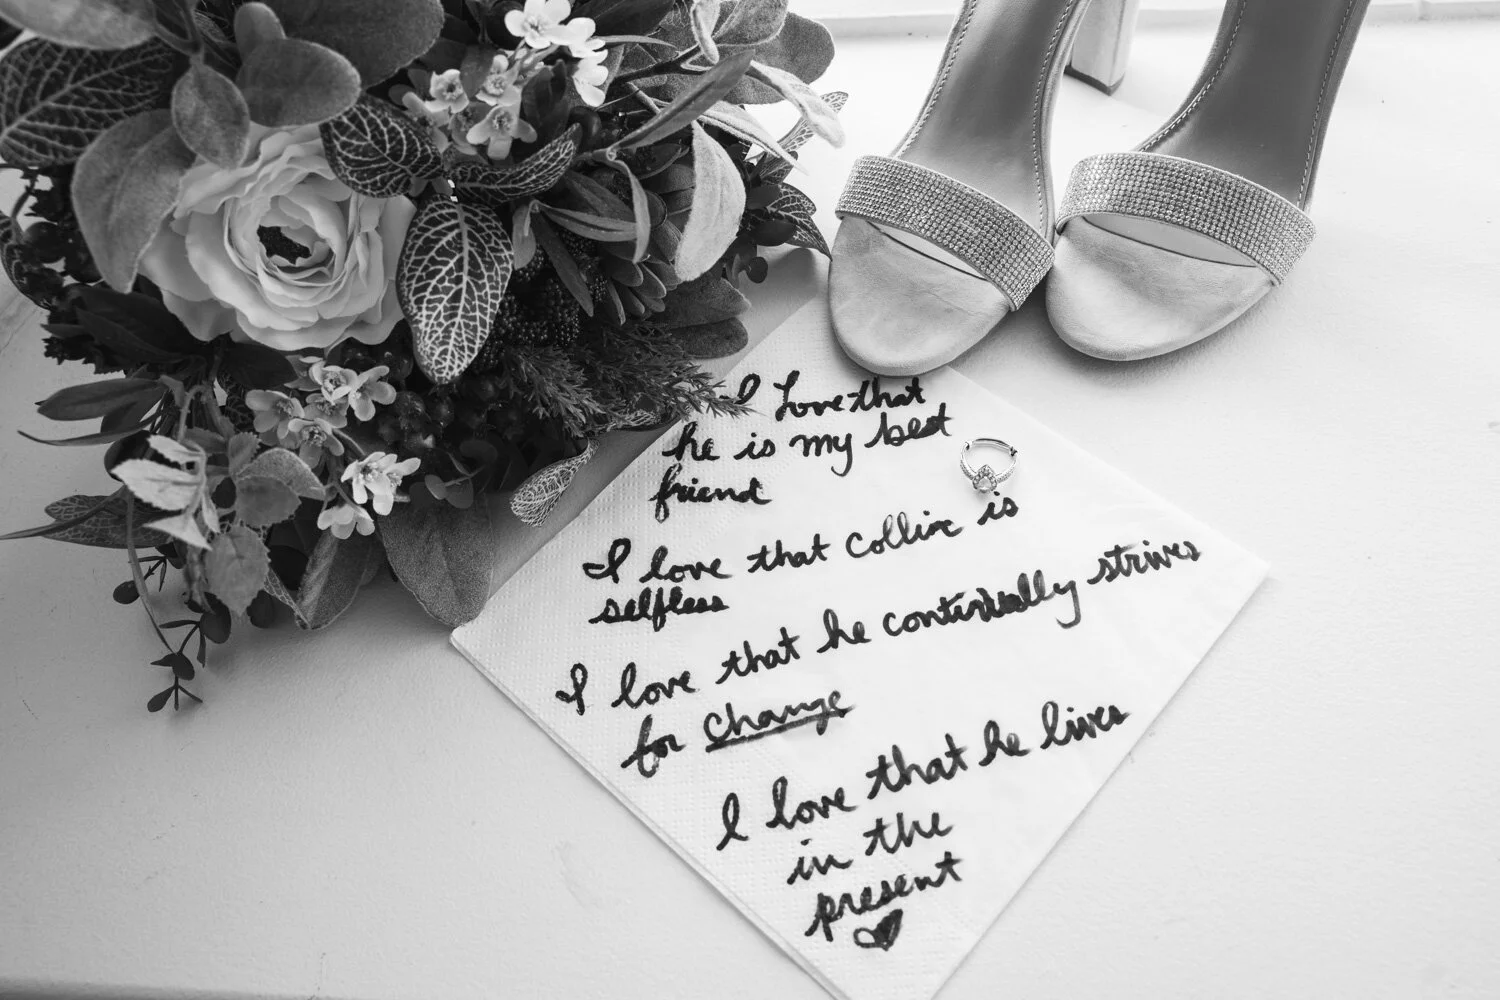 I Love that
he is my best
friend
I love that Colline is
selfless
I love that he continually strives
for change
I love that he lives
in the
present